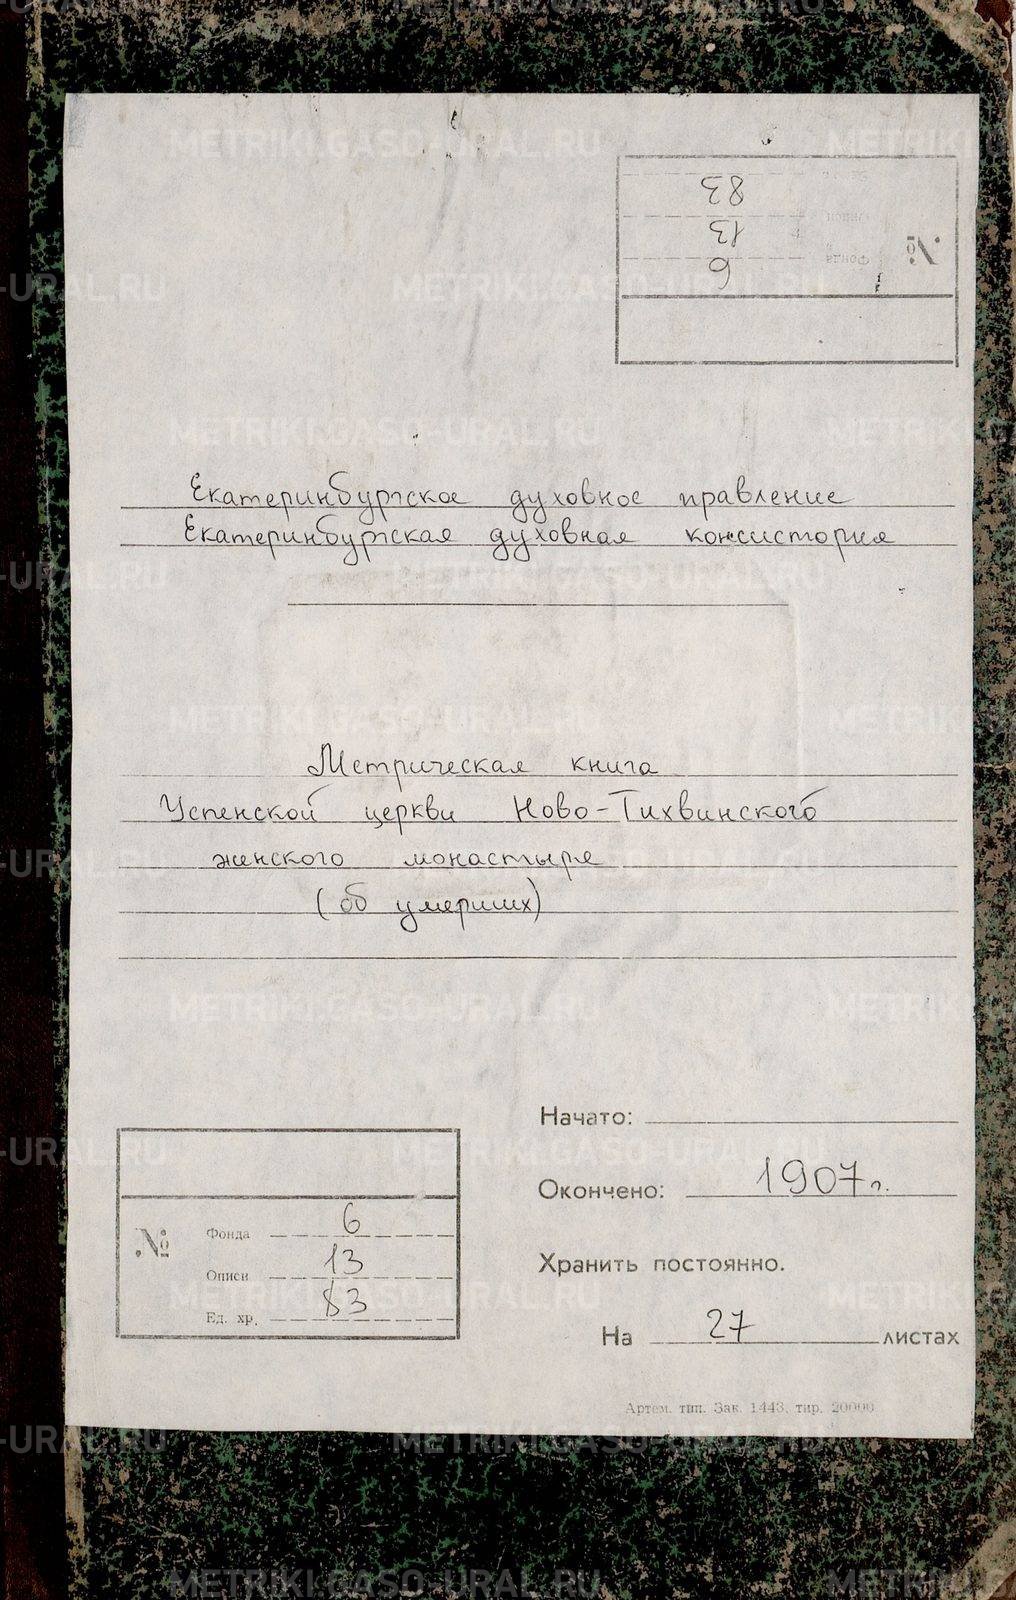 №
Фонда 6
Описи 13
83
Екатеринбургское духовное правление
Екатеринбургская духовная консистория
Метрическая книга
Успенской церкви Ново-Тихвинского
женского монастыря
(об умерших)
Начато:
Окончено: 1907 г.
Хранить постоянно.
На 27 листах
№
Фонда 6
Описи 13
Ед. хр. 83
Артем. тип. Зак. 1443, тир. 20000
METRIKI.GASO-URAL.RU